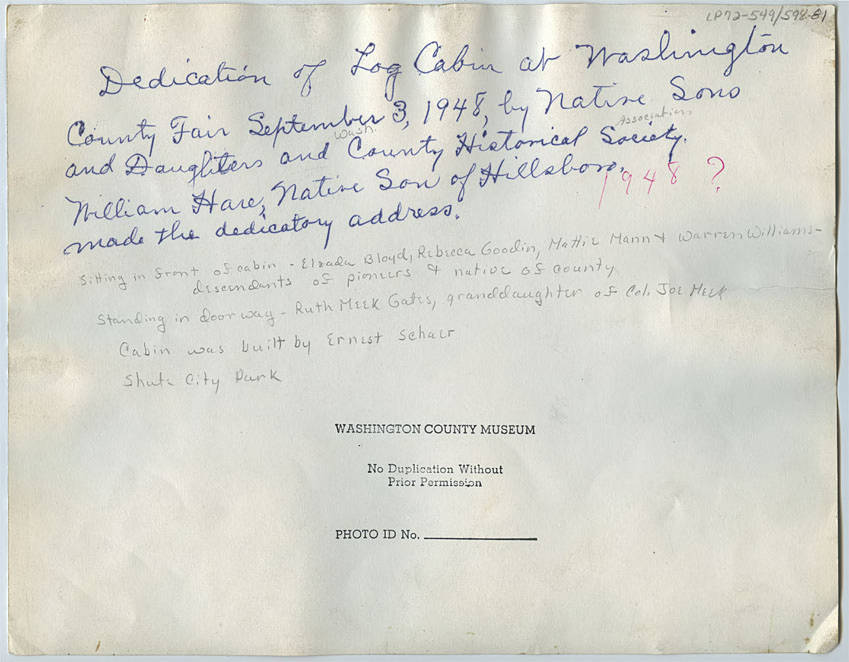 LP72-549/598-81
Dedication of Log Cabin at Washington
County Fair September 3, 1948, by Native Sons
Wash. Association
and Daughters and County Historical Society.
William Hare, Native Son of Hillsboro, 1948 ?
made the dedicatory address.
Sitting in front of cabin - Elzada Bloyd, Rebecca Goodin, Mattie Mann & Warren Williams -
descendants of pioneers & native of county
Standing in doorway - Ruth Meek Gates, granddaughter of Col. Joe Meek
Cabin was built by Ernest
Shute City Park
WASHINGTON COUNTY MUSEUM
No Duplication Without
Prior Permission
PHOTO ID No.